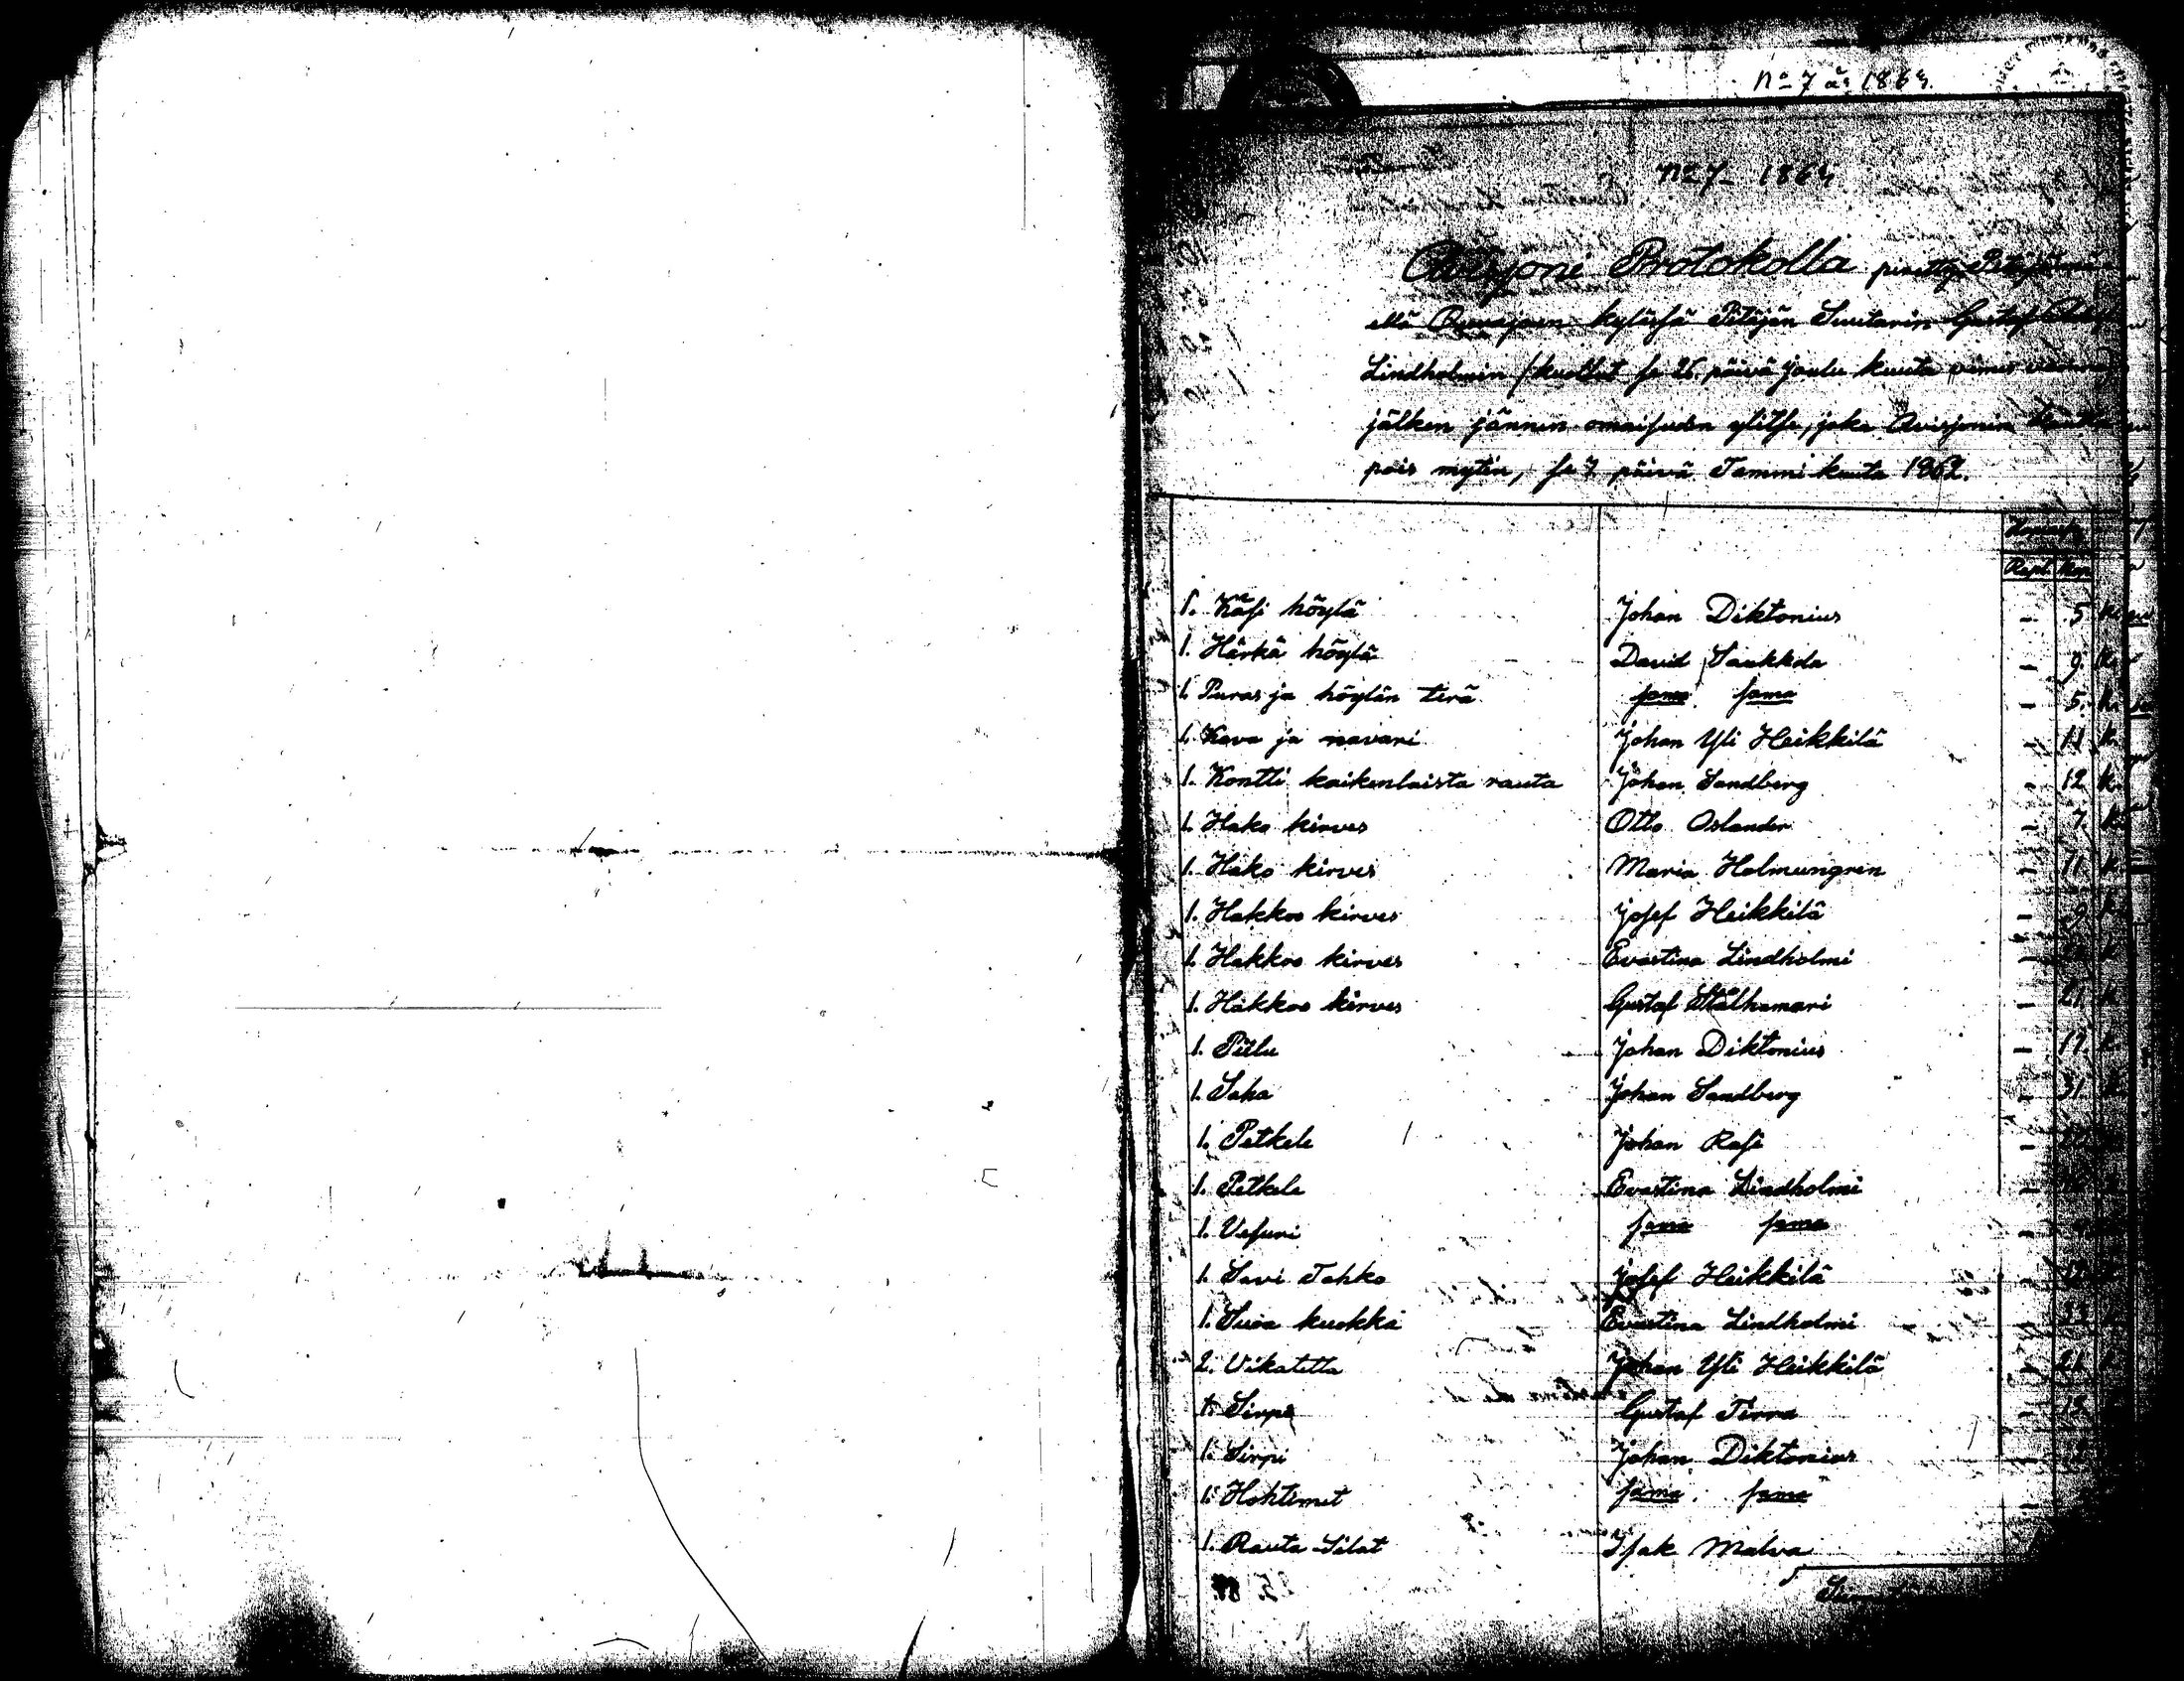 No 7 år 1864.
No 7 - 1864
Auxjoni Protokolla piretty
ellä kylässä Pitäjän Suutarin Gustaf
Lindholmin /kuollut se 26. päivä Joulu kuuta viimes
jälken jännen omaisuden ylitse, joka Auxjonin kautta
pois mytin, se 7 päivä Tammi kuuta 1862.
Rupl. Kop
1. Käsi höylä Johan Diktonius - 5 K.
1. Härkä höylä David Saukkola - 9. K.
1. Puras ja höylän terä sama sama - 5. K.
1. Kava ja navari Johan Yli Heikkilä - 11 K.
1. Kontti kaikenlaista rauta Johan Sandberg - 12 K.
1. Hako kirves Otto Oslander - 7. K.
1. Hako kirves Maria Holmungren - 11. K.
1. Hakkoo kirves Josef Heikkilä - 9. K.
1. Hakkoo kirves Evastina Lindholmi - K
1. Hakkoo kirves Gustaf Stålhamari - 21. K
1. Piilu Johan Diktonius - 17. K.
1. Saha Johan Sandberg - 31. K
1. Petkele Johan Rasi -
1. Petkele Evastina Lindholmi -
1. Vesuri sama sama -
1. Savi Tahko Josef Heikkilä - 12
1. Suoa kuokka Evastina Lindholmi - 33
2. Vikatetta Johan Yli Heikkilä - 21 K
1. Sirpi Gustaf Tirra -
1. Sirpi Johan Diktonius -
1. Hohtimet sama sama -
1. Rauta Silat Isak Malva